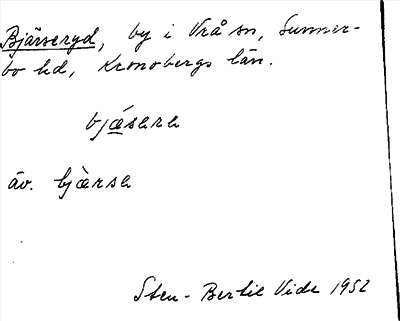 Bjärseryd, by i Vrå sn, Sunner-
bo hd, Kronobergs län.
bjǽsere
äv. bjèrse
Sten-Bertil Vide 1952